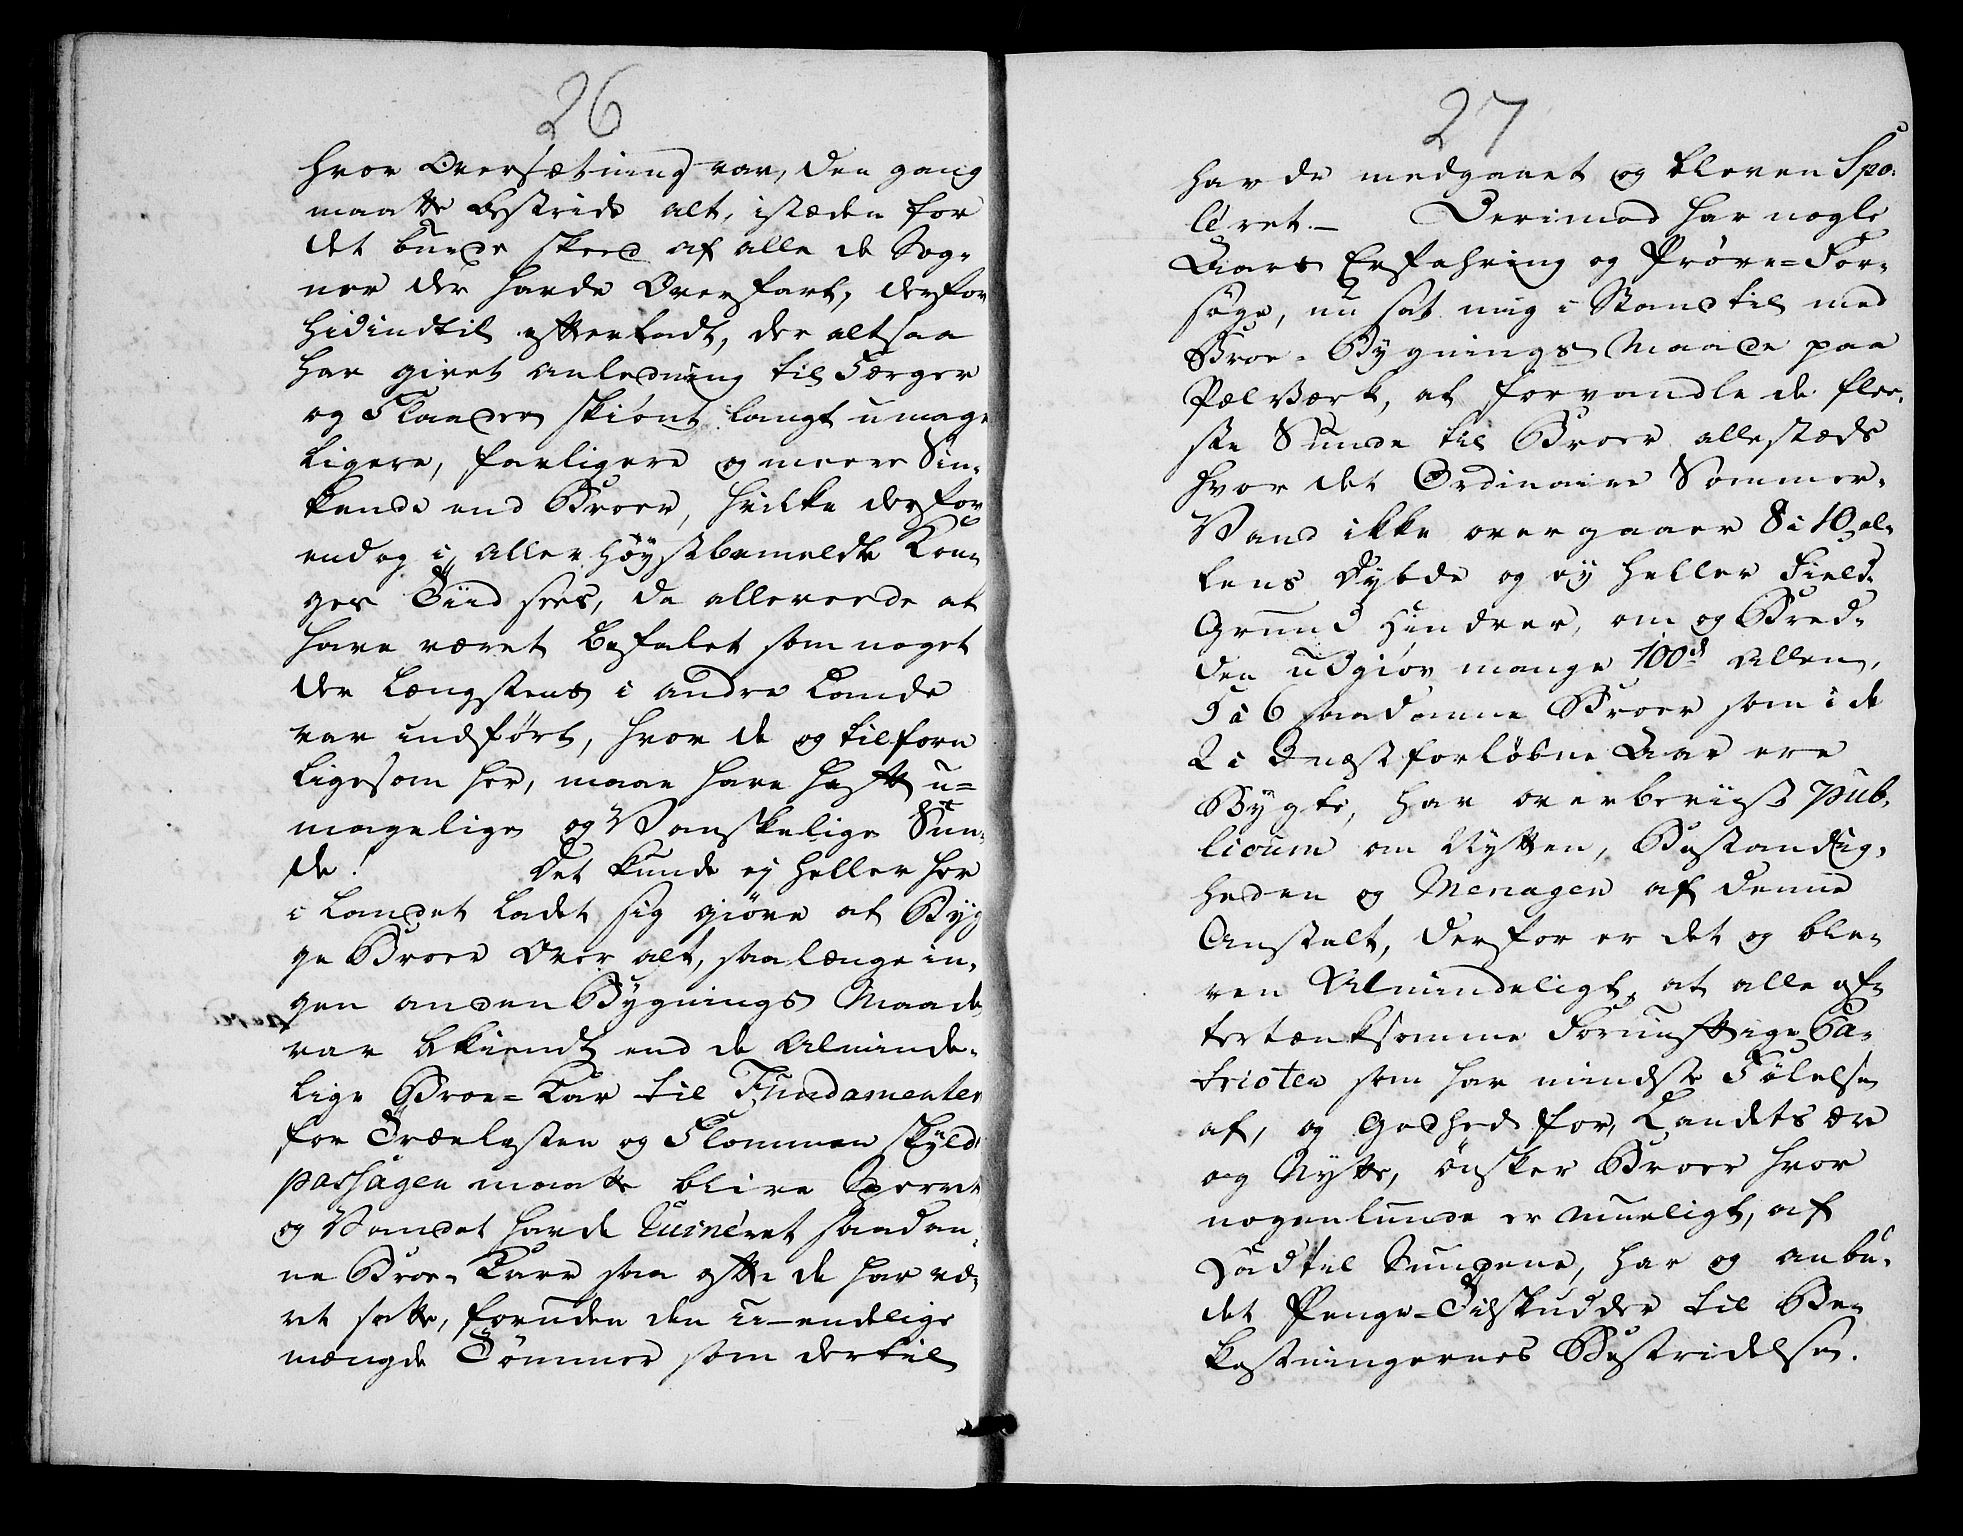 26
hvor Oversætning var, den gang
maatte bestride alt, istæden for
det burde skeed af alle de Sog-
ner der havde Overfart, derfor
hidindtil efterladt, der altsaa
har givet anledning til Færger
og Flaader, skiønt langt umage
ligere, farligere og meere Sin-
kende end Broer, hvilke derfor
endog i Aller Høystbemeldte Kon-
ges Tiid sees, da allereede at
have været befalet som noget
der længstens i andre Lande
var indført, hvor de og tilforn
ligesom her, maae have hafft u=
magelige og Vanskelige Sun-
de! Det kunde ej heller her
i Landet ladet sig giøre at Byg
ge Broer Over alt, saalænge in-
gen anden Bygnings Maade
var bekiendt end de Alminde-
lige Broe=Kar til Fundamenter
for Trælasten og Flommen skyld
passagen maatte blive Sperret
og Vandet havde Ruineret saadan-
ne Broe-Karr saa ofte de har væ-
ret satte, foruden den u-endelige
mængde Tømmer som dertil
27
havde medgaaet og bleven Spo-
leret. — Derimod har nogle
Aars Erfahring og Prøve=For-
søge, nu sat mig i Stand til med
Broe-Bygnings Maade paa
Pælværk, at forvandle de fler-
ste Sunde til Broer allestæds
hvor det Ordinaire Sommer-
Vand ikke overgaaer 8 i 10 al-
lens Dybde og ey heller Field-
Grund Hindrer, om og Bred-
den udgiør mange 100de Allen,
5 a 6 saadanne Broer som i de
2 i 3 næst forløbne Aar ere
Bygte, har overbeviist pub-
licum om Nytten, Bestandig-
heden og Menagen af denne
Anstalt, derfor er det og ble-
ven Almindeligt, at alle ef-
tertænksomme Fornuftige Pa-
trioter som har mindste Følelse
af, og Godhed for, Landets ære
og Nytte, ønsker Broer hvor
nogenlunde er mueligt, af
Sad til Sundene, har og anbu-
det Penge-Tilskudder til Be-
kostningernes Bestridelse.